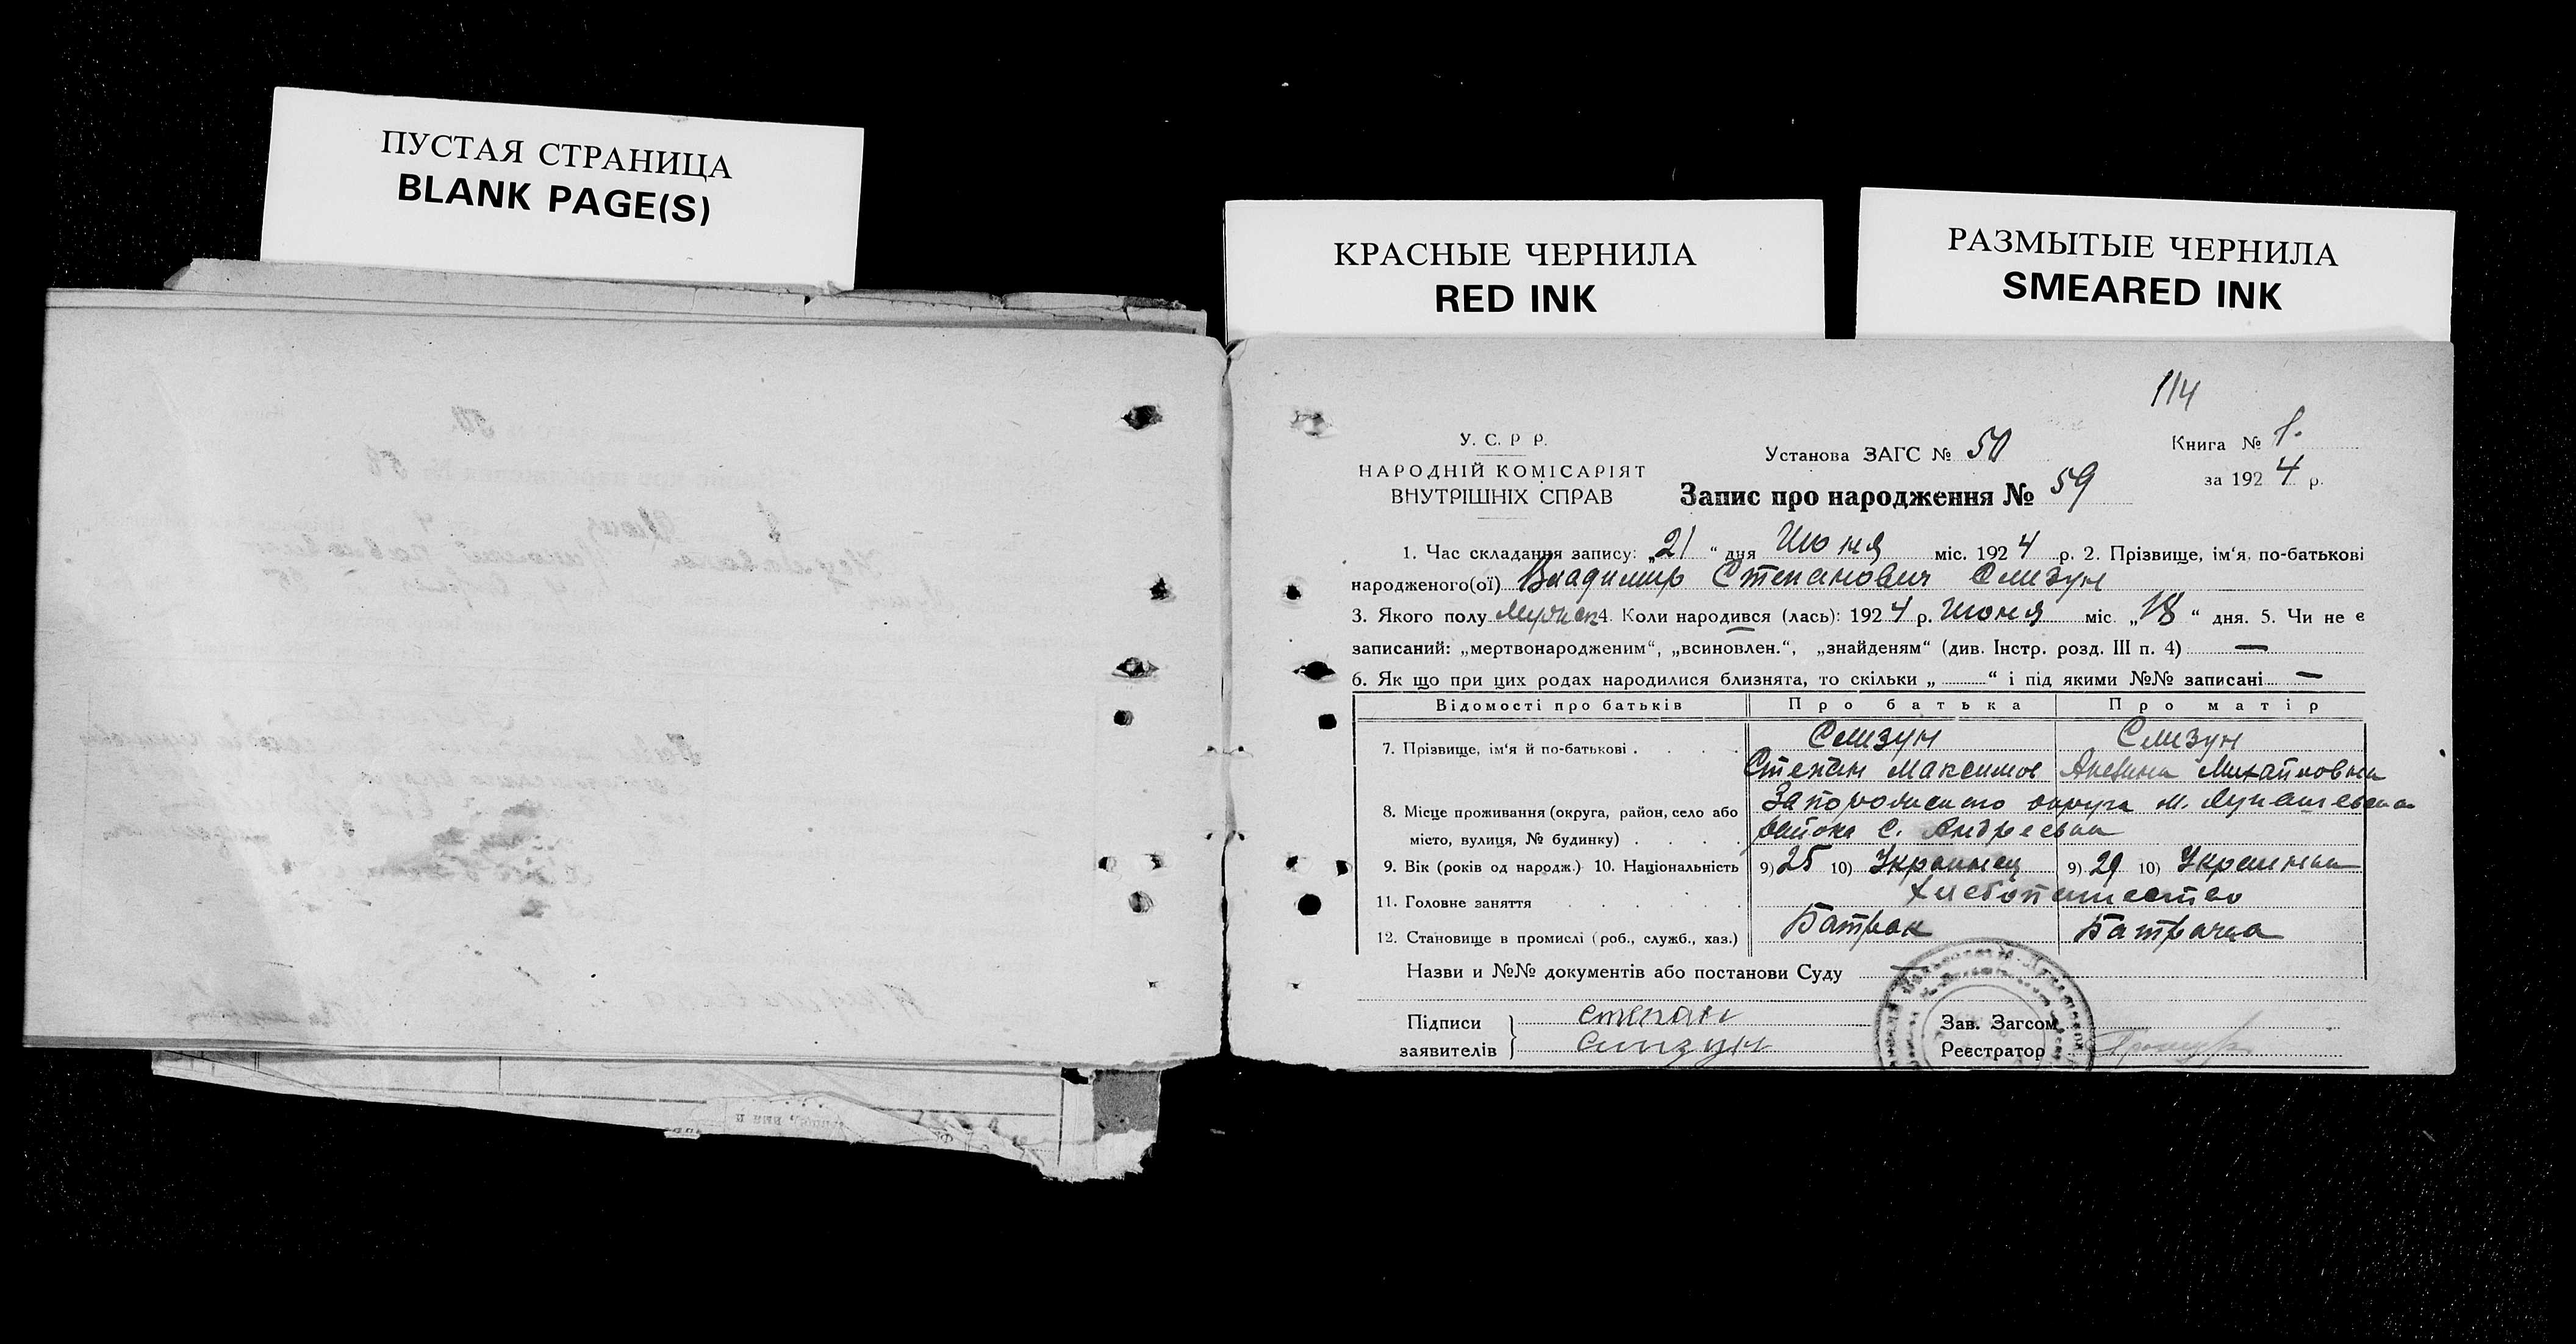 ПУСТАЯ СТРАНИЦА
BLANK PAGE(S)
КРАСНЫЕ ЧЕРНИЛА
RED INK
РАЗМЫТЫЕ ЧЕРНИЛА
SMEARED INK
114
У. С. Р Р.
НАРОДНІЙ КОМІСАРІЯТ
ВНУТРІШНІХ СПРАВ
Установа ЗАГС № 50
Запис про народження № 59
Книга № 1.
за 1924 р.
1. Час складання запису: „21“ дня Июня міс. 1924 р. 2. Прізвище, ім‘я, по-батькові
народженого(ої) Владимир Степанович Слизун
3. Якого полу Мужск 4. Коли народився (лась): 1924 р. Июня міс. „18“ дня. 5. Чи не є
записаний: „мертвонародженим“, „всиновлен.“, „знайденям“ (див. Інстр. розд. III п. 4) —
6. Як що при цих родах народилися близнята, то скільки „ “ і під якими №№ записані —
Відомості про батьків Про батька Про матір
7. Прізвище, ім‘я й по-батькові Слизун Слизун
Степан Максимов Михайловна
8. Місце проживання (округа, район, село або Запорожского округа м.
місто, вулиця, № будинку) района с. Андреевка
9. Вік (років од народж.) 10. Національність 9) 25 10) Украинец 9) 29 10) Украинка
11. Головне заняття Хлебопашество
12. Становище в промислі (роб., служб., хаз.) Батрак Батрачка
Назви и №№ документів або постанови Суду —
Підписи степан
заявителів слизун
Зав. Загсом
Реєстратор